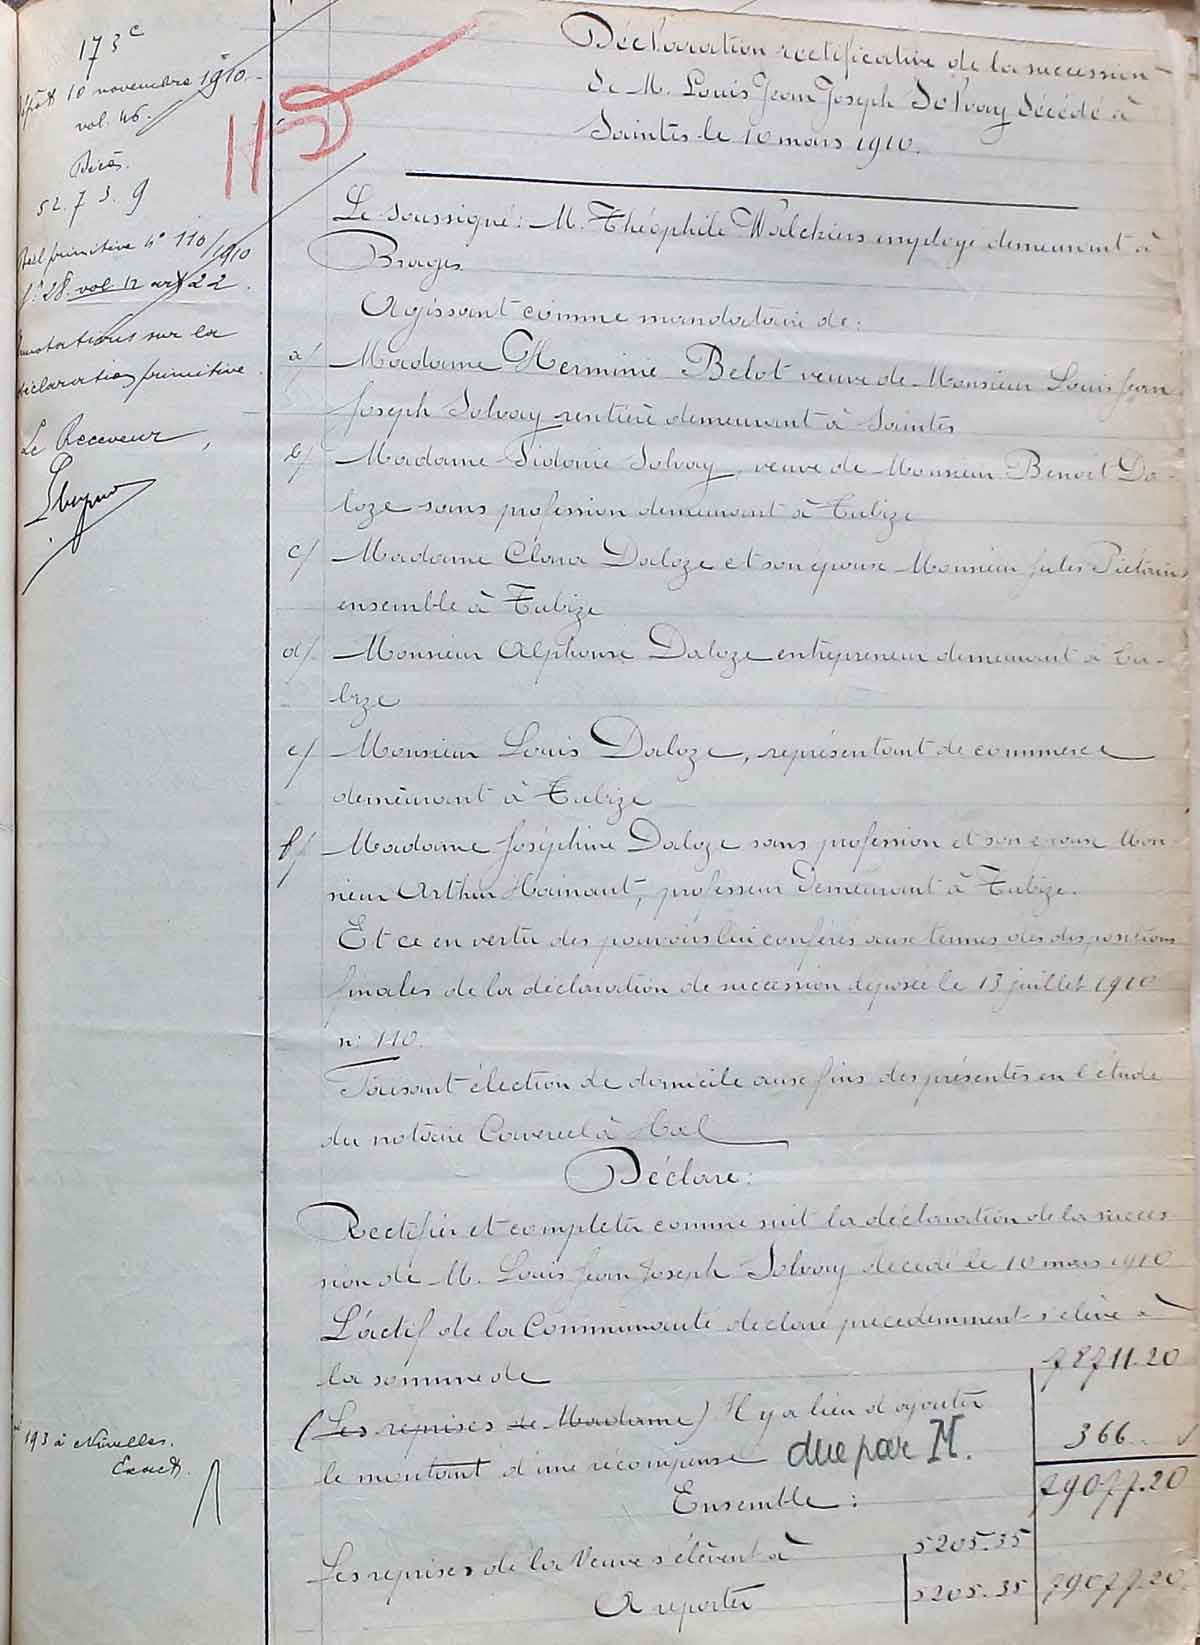 173e
10 novembre 1910.
vol. 46.
Décès.
52. 7 3. 9
primitive n° 110/1910
28 vol 12 art 22.
Annotations sur la
déclaration primitive.
Le Receveur,
115
Déclaration rectificative de la succession
de M. Louis Jean Joseph Solvay décédé à
Saintes le 10 mars 1910.
Le soussigné: M. Théophile Walckiers employé demeurant à
Bruges
Agissant comme mandataire de:
a/ Madame Herminie Belot veuve de Monsieur Louis Jean
Joseph Solvay rentière demeurant à Saintes
b/ Madame Sidonie Solvay, veuve de Monsieur Benoît Da-
loze sans profession demeurant à Tubize
c/ Madame Clara Daloze et son époux Monsieur Jules Piétains
ensemble à Tubize
d/ Monsieur Alphonse Daloze entrepreneur demeurant à Tu-
bize
e/ Monsieur Louis Daloze, représentant de commerce
demeurant à Tubize
f/ Madame Joséphine Daloze sans profession et son époux Mon
sieur Arthur Hainaut, professeur demeurant à Tubize.
Et ce en vertu des pouvoirs lui conférés aux termes des dispositions
finales de la déclaration de succession déposée le 13 juillet 1910
n: 110.
Faisant élection de domicile aux fins des présentes en l'étude
du notaire à Hal
Déclare:
Rectifier et compléter comme suit la déclaration de la succes
sion de M. Louis Jean Joseph Solvay décédé le 10 mars 1910
L'actif de la Communauté déclaré précédemment s'élève à
la somme de 78711.20
(Les reprises de Madame) Il y a lieu d'ajouter
le montant d'une récompense due par M. 366
Ensemble: 79077.20
Les reprises de la Veuve s'élèvent à 5205.35
A reporter 5205.35 79077.20
193 à Nivelles.
Exact.